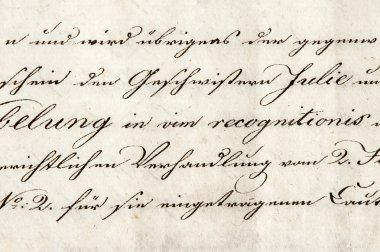 n und wird übrigens der gegenw
schein den Geschwistern Julie un
belung in vim recognitionis
erichtlichen Verhandlung vom 2. F
No: 2. für sie eingetragenen Caut